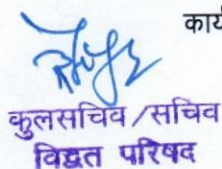 कार्य
कुलसचिव/सचिव
विद्वत परिषद